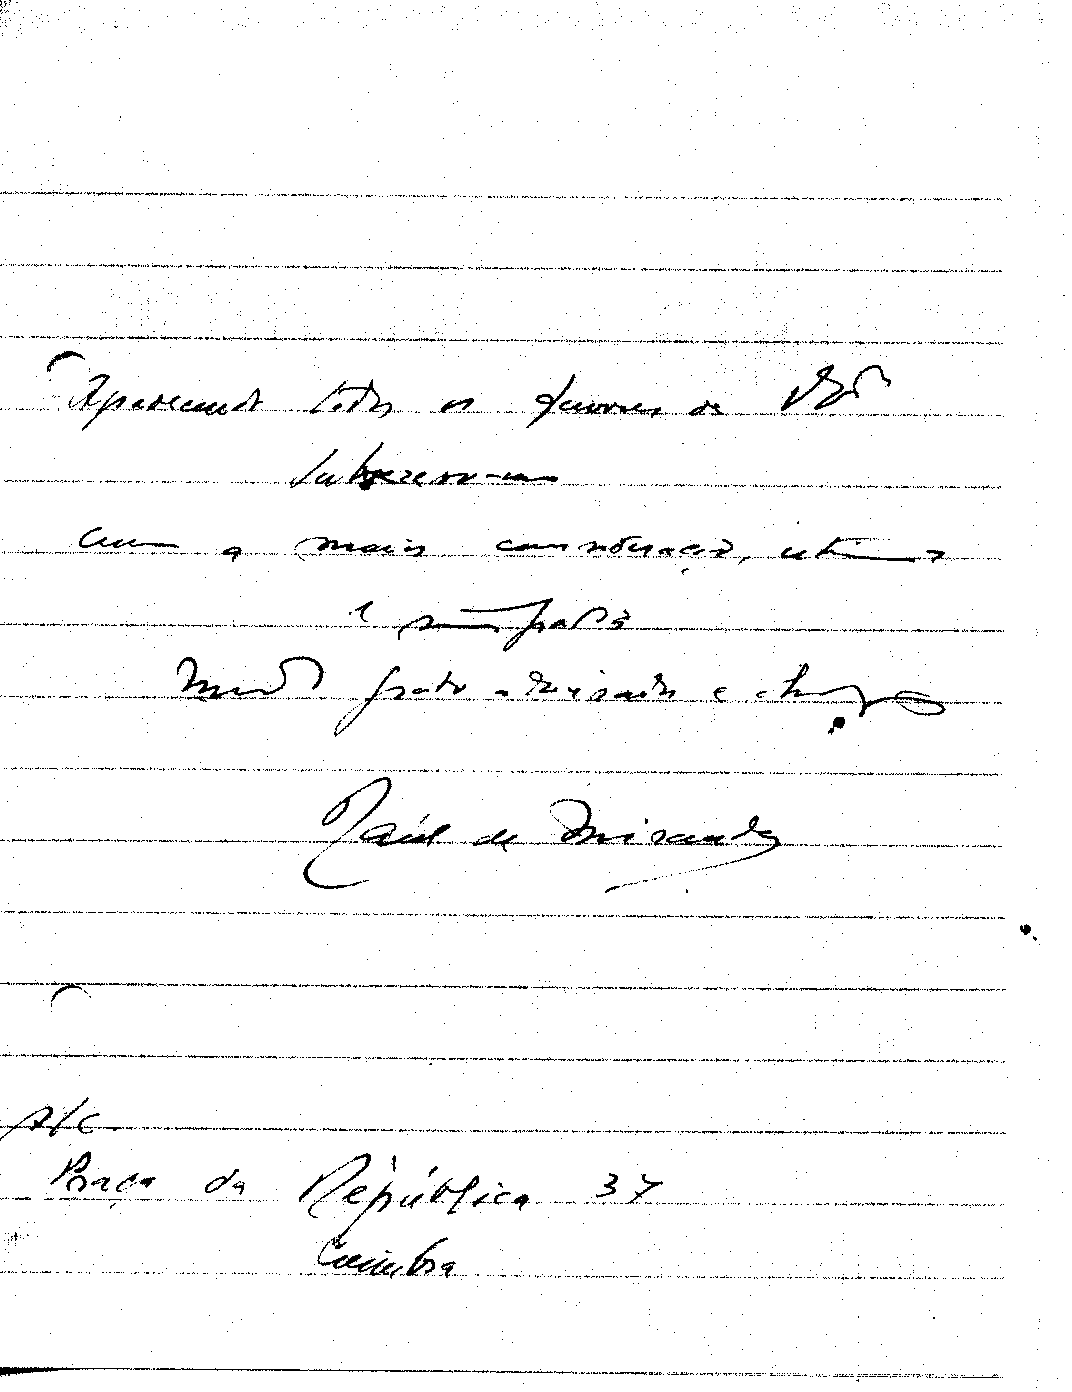 Agradecendo todos os favores de V. Exª
subscrevo-me
com a mais consideração, estima
e simpatia
Muito grato obrigado e
Raúl de Miranda
S/C.
Praça da República 37
Coimbra